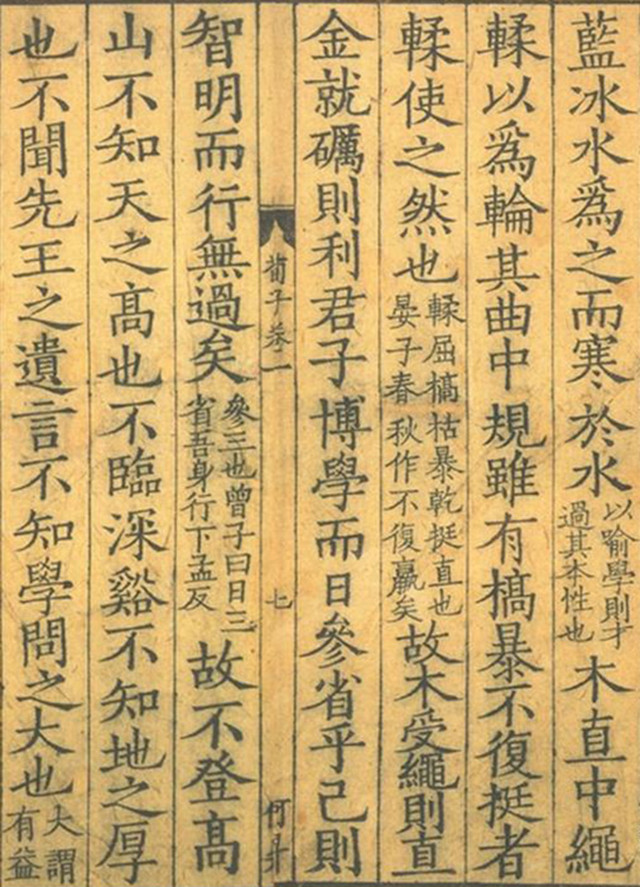 藍冰水爲之而寒於水以喻學則才過其本性也木直中繩
輮以爲輪其曲中規雖有槁暴不復挺者
輮使之然也輮屈槁枯暴乾挺直也晏子春秋作不復贏矣故木受繩則直
金就礪則利君子博學而日參省乎己則
荀子卷一 七 何昇
智明而行無過矣參三也曾子曰日三省吾身行下孟反故不登高
山不知天之高也不臨深谿不知地之厚
也不聞先王之遺言不知學問之大也大謂有益